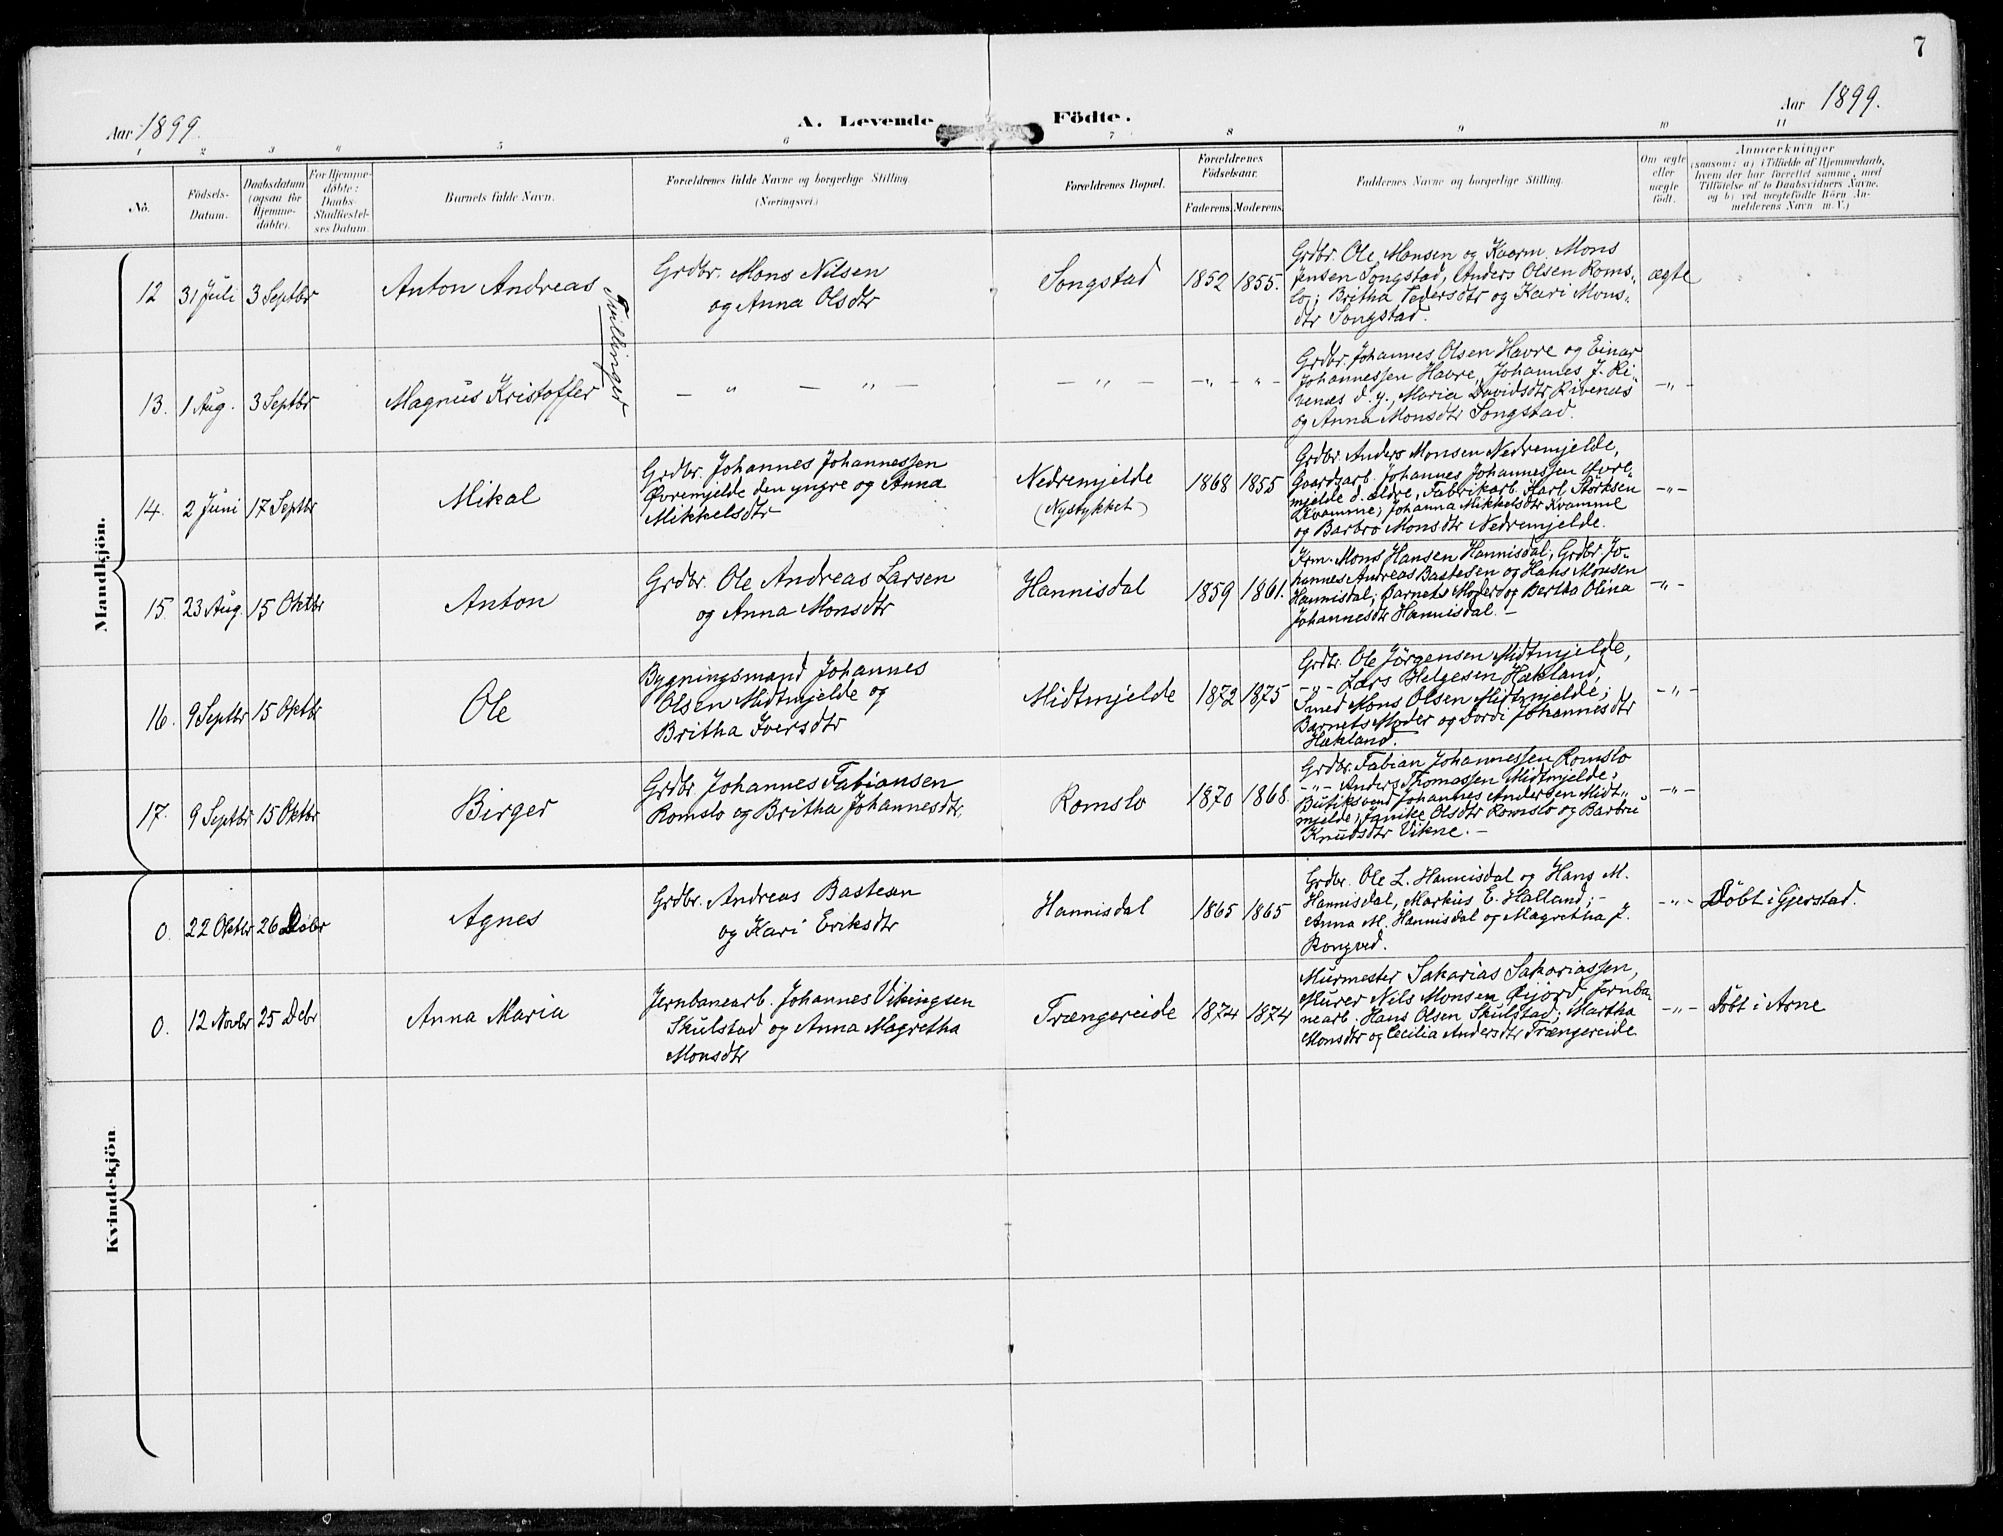 7
Aar 1899.
A. Levende Födte.
Aar 1899.
1 2 3 4 5 6 7 8 9 10 11
No.
Födsels-
Datum.
Daabsdatum
(ogsaa for
Hjemme-
döbte).
For Hjemme-
döbte:
Daabs-
Stadfæstel-
ses Datum.
Barnets fulde Navn.
Forældrenes fulde Navne og borgerlige Stilling
(Næringsvei.)
Forældrenes Bopæl.
Forældrenes
Födselsaar.
Faderens. Moderens.
Faddernes Navne og borgerlige Stilling.
Om ægte
eller
uægte
født.
Anmærkninger
(saasom: a) i Tilfælde af Hjemmedaab,
hvem der har forrettet samme, med
Tilføielse af to Daabsvidners Navne,
og b) ved uægtefødte Börn An-
melderens Navn m. V.)
Mandkjön.
12 31 Juli 3 Septbr
Anton Andreas
Tvillinger
Grdbr. Mons Nilsen
og Anna Olsdtr
Songstad 1852 1855.
Grdbr. Ole Monsen og Kaarm. Mons
Jensen Songstad, Anders Olsen Roms-
lo; Britha Pedersdtr og Kari Mons-
dtr Songstad.
ægte
13. 1 Aug. 3 Septbr
Magnus Kristoffer
— „ — „ —
— „ — — „ — — „ —
Grdbr. Johannes Olsen Havre og Einar
Johannessen Havre, Johannes J. Ri-
venæs d. y., Maria Davidsdtr Rivenæs
og Anna Monsdtr Songstad.
— „ —
14. 2 Juni 17 Septbr
Mikal
Grdbr. Johannes Johannessen
Øvremjelde den yngre og Anna
Mikkelsdtr
Nedremjelde
(Nystykket)
1868 1855
Grdbr. Anders Monsen Nedremjelde,
Gaardsarb. Johannes Johannessen Øvre-
mjelde d. ældre, Fabrikarb. Karl Störksen
Kvamme; Johanna Mikkelsdtr Kvamme
og Barbro Monsdtr Nedremjelde.
— „ —
15. 23 Aug. 15 Oktbr
Anton
Grdbr. Ole Andreas Larsen
og Anna Monsdtr
Hannisdal 1859 1861.
Frm. Mons Hansen Hannisdal; Grdbr. Jo-
hannes Andreas Bastesen og Hans Monsen
Hannisdal; Barnets Moder og Bertha Olina
Johannesdtr Hannisdal. —
— „ —
16. 9 Septbr 15 Oktbr
Ole
Bygningsmand Johannes
Olsen Midtmjelde og
Britha Iversdtr
Midtmjelde 1872 1875
Grdbr. Ole Jörgensen Midtmjelde,
— „ — Lars Helgesen Hækland,
Smed Mons Olsen Midtmjelde;
Barnets Moder og Dordi Johannesdtr
Hækland.
— „ —
17. 9 Septbr 15 Oktbr
Birger
Grdbr Johannes Fabiansen
Romslo og Britha Johannesdtr.
Romslo 1870 1868.
Grdbr. Fabian Johannessen Romslo
— „ — Anders Thomassen Midtmjelde,
Butiksvend Johannes Andersen Midt-
mjelde; Janike Olsdtr Romslo og Barbru
Knudsdtr Vikne. —
— „ —
Kvindekjön.
0. 22 Oktbr 26 Debr
Agnes
Grdbr. Andreas Bastesen
og Kari Eriksdtr
Hannisdal 1865 1865
Grdbr. Ole L. Hannisdal og Hans M.
Hannisdal, Markus E. Halland; —
Anna M. Hannisdal og Magretha J.
Rongved.
— „ — Döbt i Gjerstad.
0. 12 Novbr 25 Debr
Anna Maria
Jernbanearb. Johannes Vikingsen
Skulstad og Anna Magretha
Monsdtr
Trængereide 1874 1874
Murmester Sakarias Sakariassen,
Murer Nils Monsen Öijord, Jernba-
nearb. Hans Olsen Skulstad; Martha
Monsdtr og Cecilia Andersdtr Trængereide
— „ — Döbt i Arne